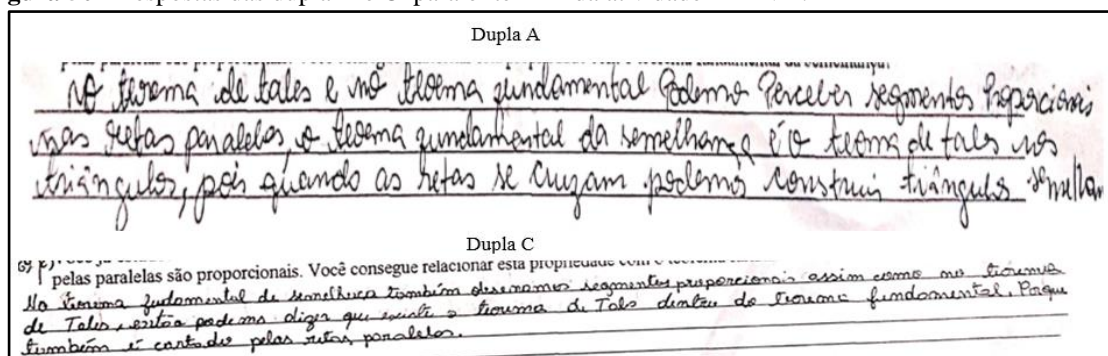 Dupla A
No teorema de tales e no teorema fundamental Podemo Perceber segmentos Proporcionais
nas retas paralelas, o teorema fundamental da semelhança é o teorema de tales nos
triângulos, pois quando as retas se cruzam podemos construir triângulos
Dupla C
pelas paralelas são proporcionais. Você consegue relacionar esta propriedade com o
No teorema fudamental de também segmentos proporcionais assim como no teorema
de Tales, então podemos dizer que existe o teorema de Tales dentro do teorema fundamental. Porque
também é cortado pelas retas paralelas.